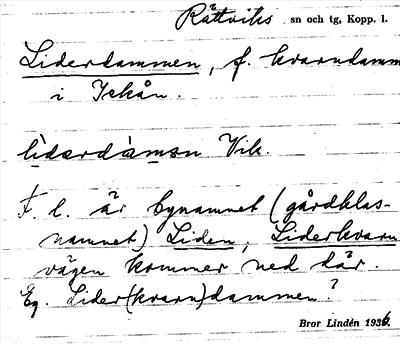 Rättviks sn och tg, Kopp. l.
Liderdammen, f. kvarndamm
i Ickån.
lìderdàmən Vik.
F. l. är bynamnet (gårdklas-
namnet) Liden, Liderkvarn
vägen kommer ned där.
Eg. Lider(kvarn)dammen?
Bror Lindén 1936.